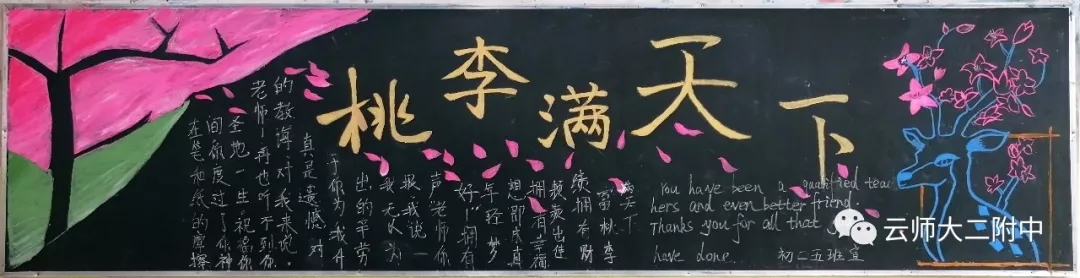 桃李满天下
在笔和纸的摩擦
间你度过了你神
圣地一生祝福你
老师!再也听不到你
的教诲,对我来说,
真是遗憾。对
于你为我付
出的辛劳
我无以为
报,我说一
声"老师你
好!"拥有
年轻梦
想即成真
拥有幸福
出佳
绩拥有财
富桃李
满天下
You have been a qualified teac
hers and even better friend.
Thanks you for all that
have done.
初二五班宣
云师大二附中